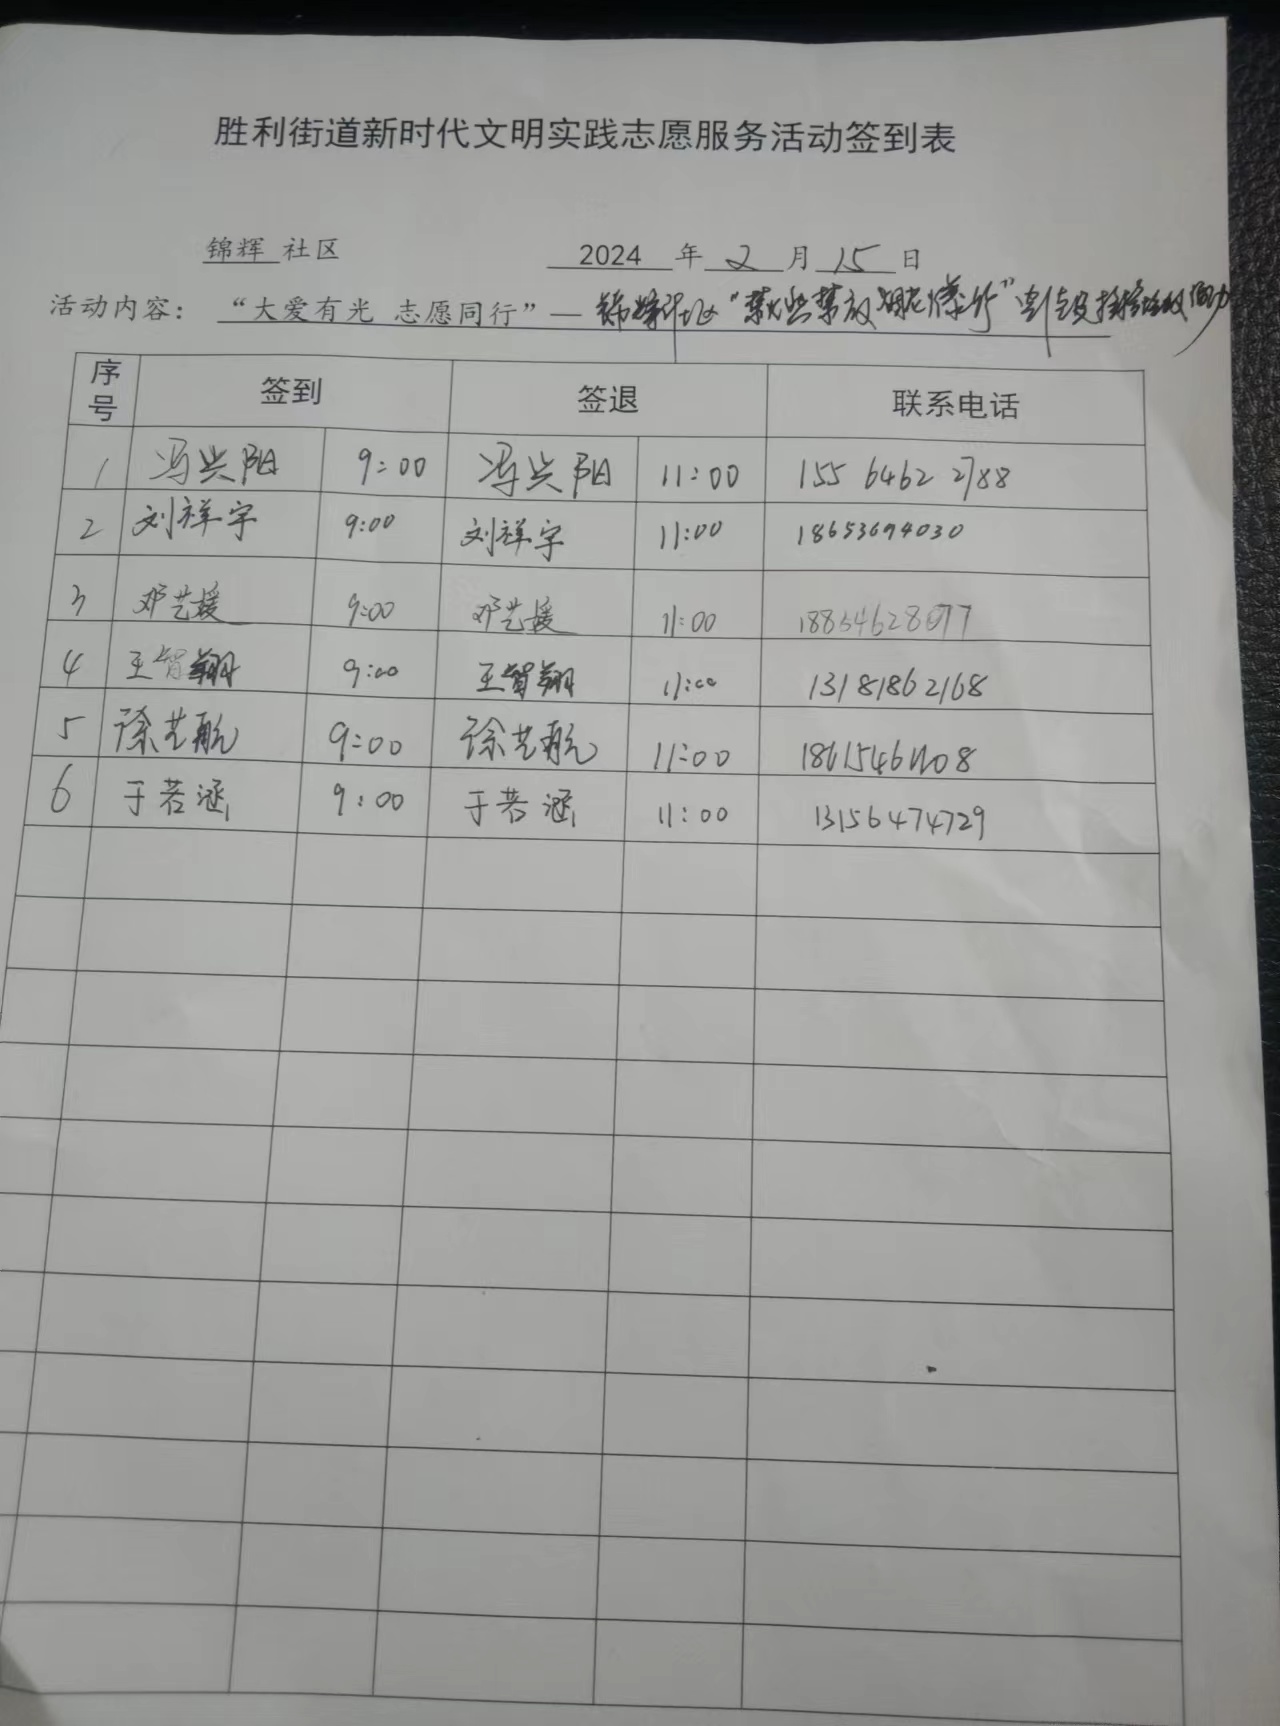 胜利街道新时代文明实践志愿服务活动签到表
锦辉 社区 2024 年 2 月 15 日
活动内容： “大爱有光 志愿同行”— 锦辉社区“禁燃禁放烟花爆竹”
序号 签到 签退 联系电话
1 冯兴阳 9:00 冯兴阳 11:00 155 6462 2788
2 刘祥宇 9:00 刘祥宇 11:00 18653694030
3 邓艺援 9:00 邓艺援 11:00
4 王智翔 9:00 王智翔 11:00 13181862168
5 徐艺航 9:00 徐艺航 11:00
6 于若涵 9:00 于若涵 11:00 13156474729